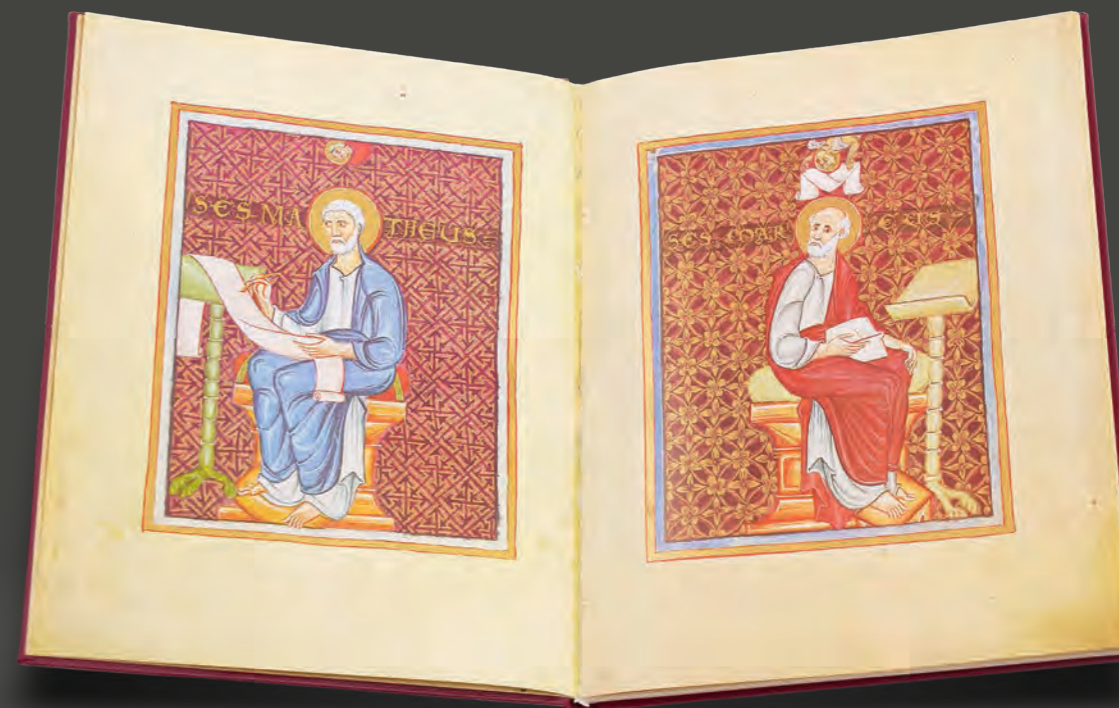 SCS MATHEUS
SCS MARCUS